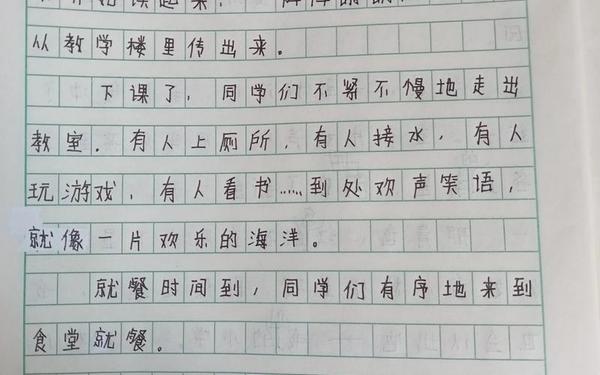 从教学楼里传出来。
下课了，同学们不紧不慢地走出
教室.有人上厕所，有人接水，有人
玩游戏，有人看书……到处欢声笑语，
就像一片欢乐的海洋。
就餐时间到，同学们有序地来到
食堂就餐。